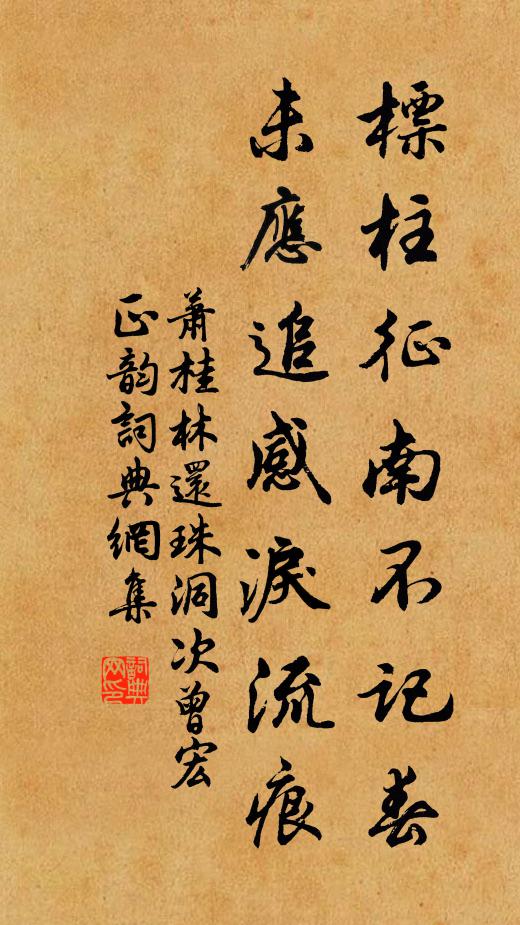 標柱征南不記春
未應追感淚流痕
蕭桂林還珠洞次曾宏
正韵詞典網集
詞典網印